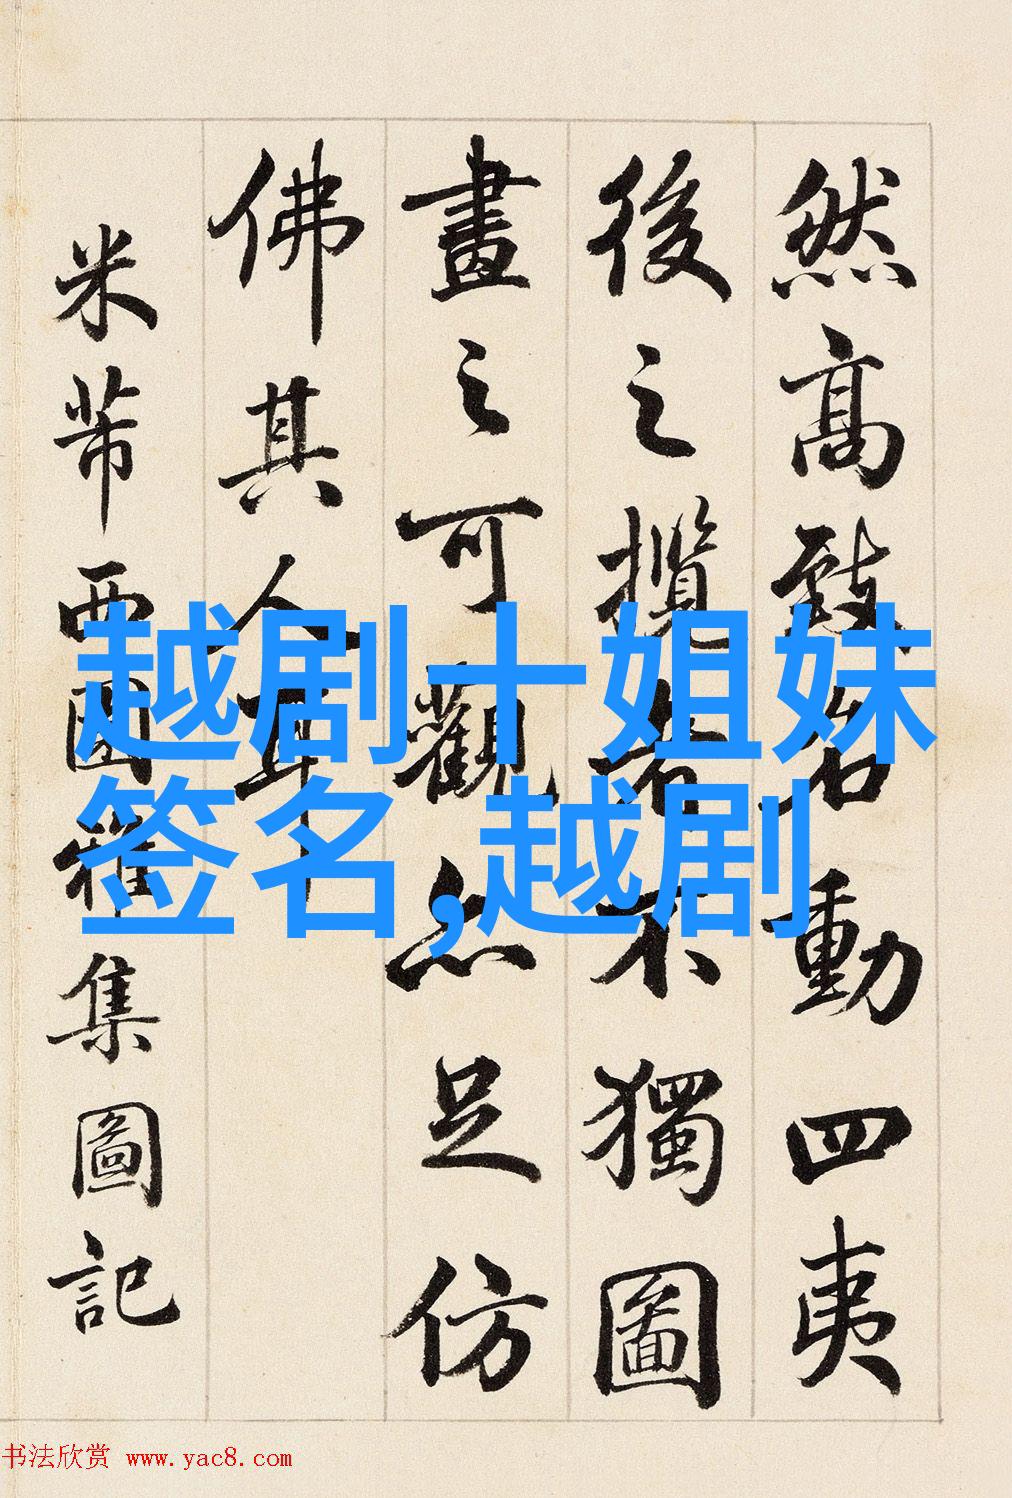 然高致名動四夷
後之攬者不獨圖
畫之可觀亦足仿
佛其人耳
米芾西園雅集圖記
越剧十姐妹
签名,越剧
书法欣赏 www.yac8.com